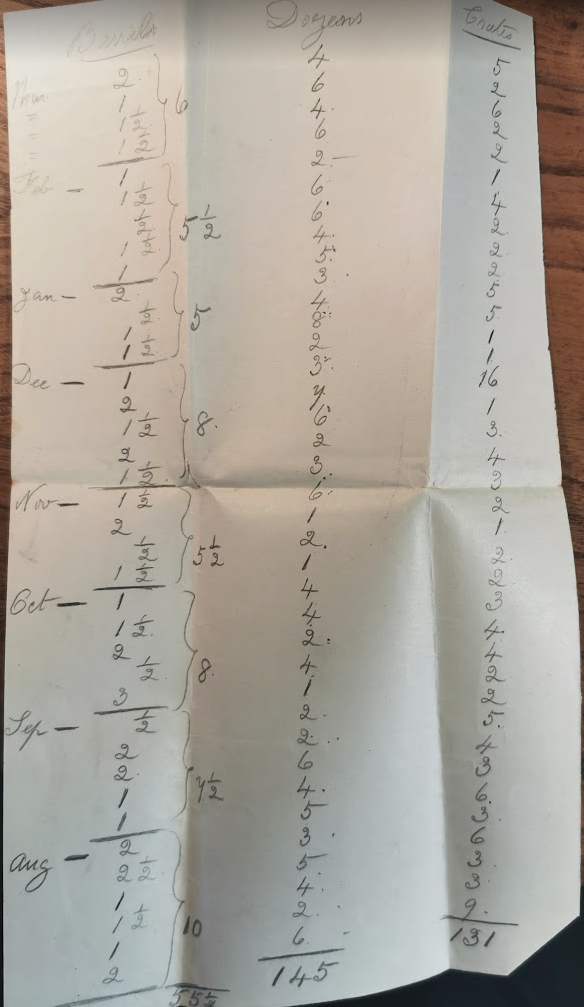 Barrels
2
1
1 ½
1 ½
6
Feb - 1
1 ½
½
½
1
1
5 ½
Jan - 2
1 ½
1 ½
5
Dec - 1
2
1 ½
2
1 ½
8
Nov - 1 ½
2
½
1 ½
5 ½
Oct - 1
1 ½
2
½
3
8
Sep - ½
2
2
1
1
7 ½
Aug - 2
2 ½
1
1 ½
1
2
10
55 ½
Dozens
4
6
4
6
2
6
6
4
5
3
4
8
2
3
7
6
2
3
6
1
2
1
4
4
2
4
1
2
2
6
4
5
3
5
4
2
6
145
Crates
5
2
6
2
2
1
4
2
2
2
5
5
1
1
16
1
3
4
3
2
1
2
2
3
4
4
2
2
5
4
3
6
3
6
3
3
9
131